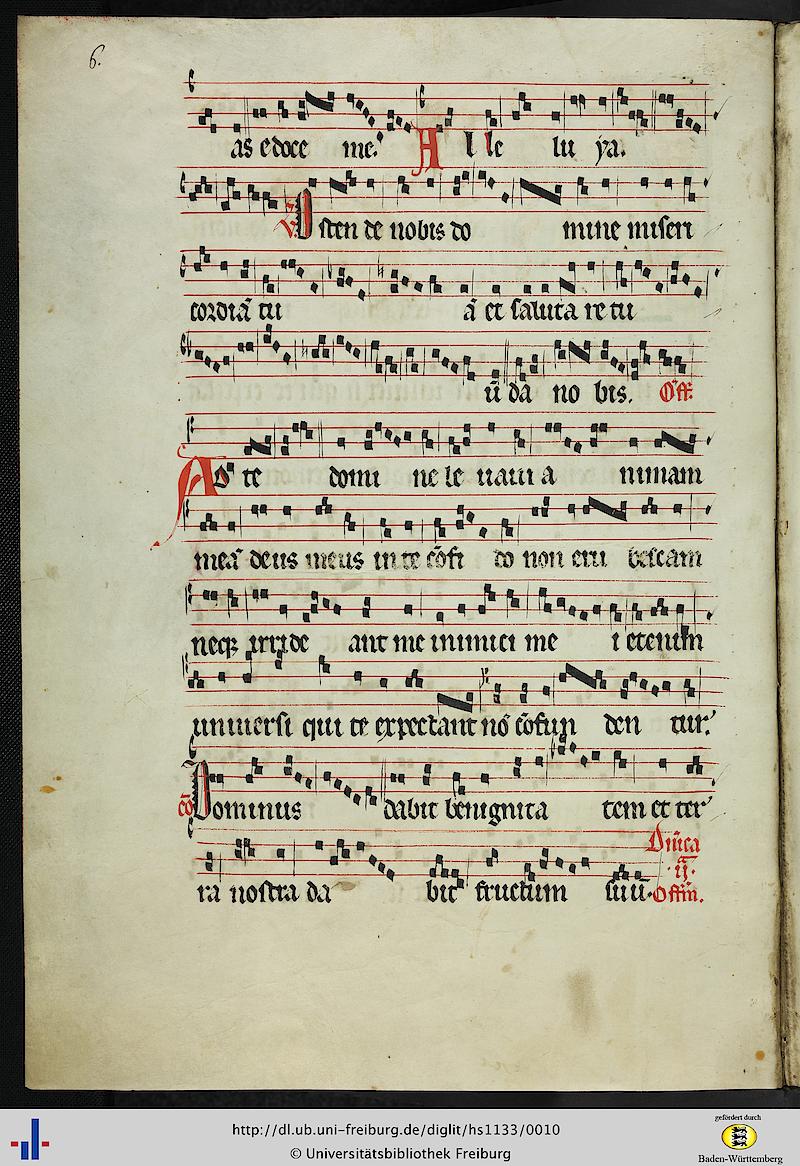 6.
as edoce me. Al le lu ya.
V. Osten de nobis do mine miseri
cordiā tu ā et saluta re tu
ū da no bis. Off.
AD te domi ne le uaui a nimam
meā deus meus in te cōfi do non eru bescam
neqꝫ irride ant me inimici me i etenim
uniuersi qui te expectant nō cōfun den tur.
cō Dominus dabit benignita tem et ter
Dn̄ica
ra nostra da bit fructum suū. ij.
Offm̄.
http://dl.ub.uni-freiburg.de/diglit/hs1133/0010
© Universitätsbibliothek Freiburg
gefördert durch
Baden-Württemberg